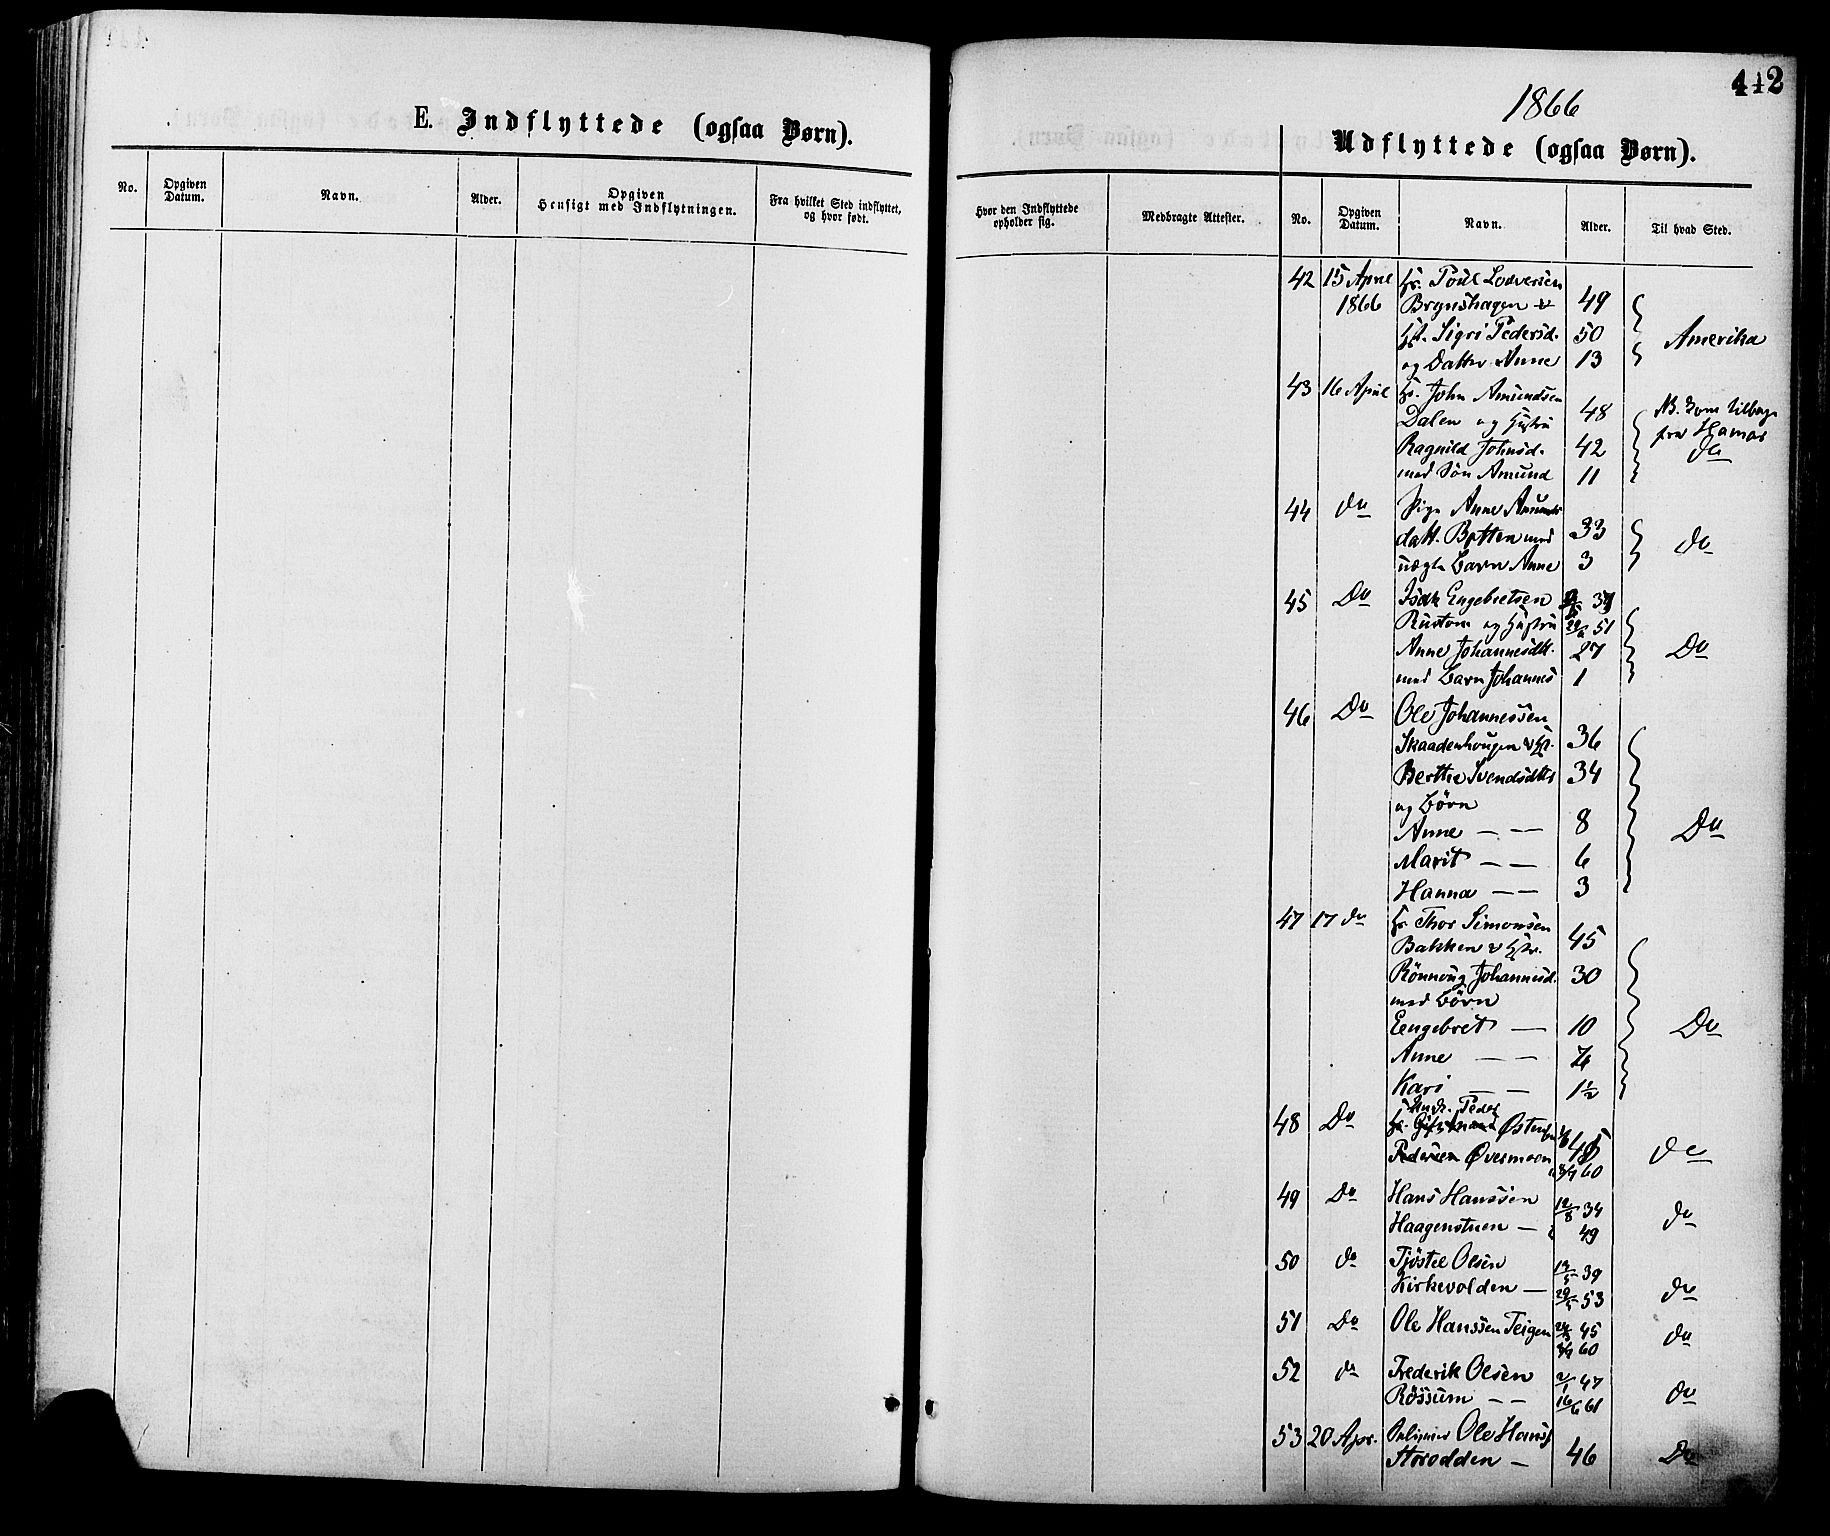 E. Indflyttede (ogsaa Børn).
No.
Opgiven Datum.
Navn.
Alder.
Opgiven Hensigt med Indflytningen.
Fra hvilket Sted indflyttet, og hvor født.
442
1866
Udflyttede (ogsaa Børn).
Hvor den Indflyttede opholder sig.
Medbragte Attester.
No.
Opgiven Datum.
Navn.
Alder.
Til hvad Sted.
42 15 April Poul Lodversen
1866 Brynshagen 49
Sigri Pedersd. 50 Amerika
og Datter Anne 13
43 16 April John Amundsen
Dalen og Hustru 48 NB. kom tilbage
Ragnild Johnsd. 42 fra Hamar do
med Søn Amund 11
44 do Pige Anne Amunds
datt. Bøtten med 33 do
uægte Barn Anne 3
45 Do Isak Engebretsen
Rustom og Hustru 29/6 51
Anne Johannesdtt. 27 Do
med Barn Johannes 1
46 Do Ole Johannessen
Skaadenhougen & 36
Berthe Svendsdtt 34
og Børn
Anne — — 8 Do
Marit — — 6
Hanna — — 3
47 17 do Thor Simonsen
Bakken & 45
Rønnoug Johannesd. 30
med Børn
Eengebret — 10 Do
Anne — —
Kari — — 1½
48 Do Peder Østen
Pedersen Øvermoen 60 do
49 Do Hans Hanssen 12/8 34
Haagenstuen — 49 do
50 do Tjøstel Olsen 39
Kirkevolden — 53 do
51 Do Ole Hanssen Teigen 45 do
60
52 do Frederik Olsen 2/1 47
Røssum — — 16/6 61 do
53 20 Apr. Ole Hans
Storodden — 46 Do